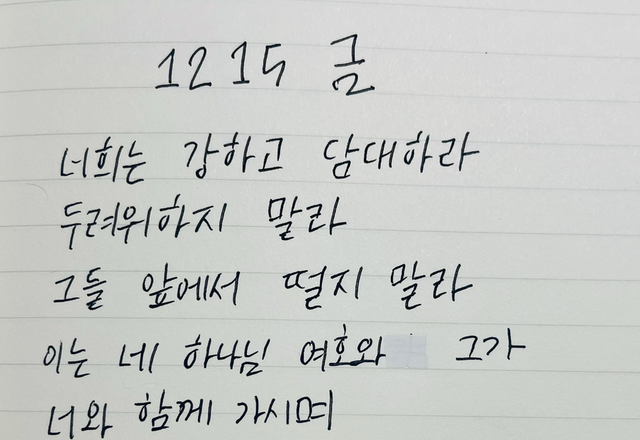 1215 금
너희는 강하고 담대하라
두려워하지 말라
그들 앞에서 떨지 말라
이는 네 하나님 여호와 그가
너와 함께 가시며